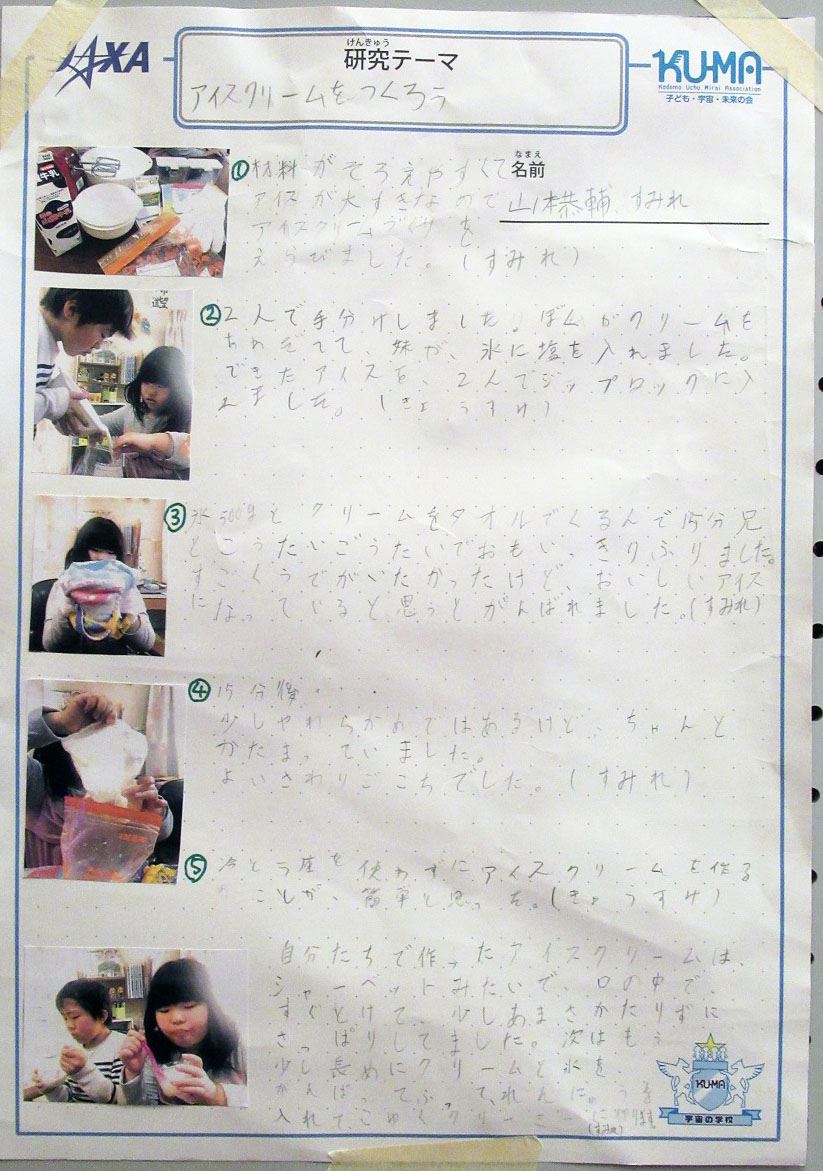 JAXA
けんきゅう
研究テーマ
アイスクリームをつくろう
KU-MA
Kodomo Uchu Mirai Association
子ども・宇宙・未来の会
なまえ
名前
山本恭輔、すみれ
①材料がそろえやすくて
アイスが大すきなので
アイスクリームづくりを
えらびました。(すみれ)
②2人で手分けしました。ぼくがクリームを
妹が、氷に塩を入れました。
できたアイスを、2人でジップロックに入
ました。(きょうすけ)
③氷500gとクリームをタオルでくるんで15分兄
とこうたいごうたいでおもいっきりふりました。
すごくうでがいたかったけど、おいしいアイス
になっていると思うとがんばれました。(すみれ)
④15分後。
少しやわらかめではあるけど、ちゃんと
かたまっていました。
よいさわりごこちでした。(すみれ)
⑤冷とう庫を使わずにアイスクリームを作る
ことが、簡単と思った。(きょうすけ)
自分たちで作ったアイスクリームは、
シャーベットみたいで、口の中で、
すぐとけて、少しあまさがたりずに
さっぱりしてました。次はもう
少し長めにクリームと氷を
がんばってふって
入れて
(すみれ)
KU-MA
宇宙の学校